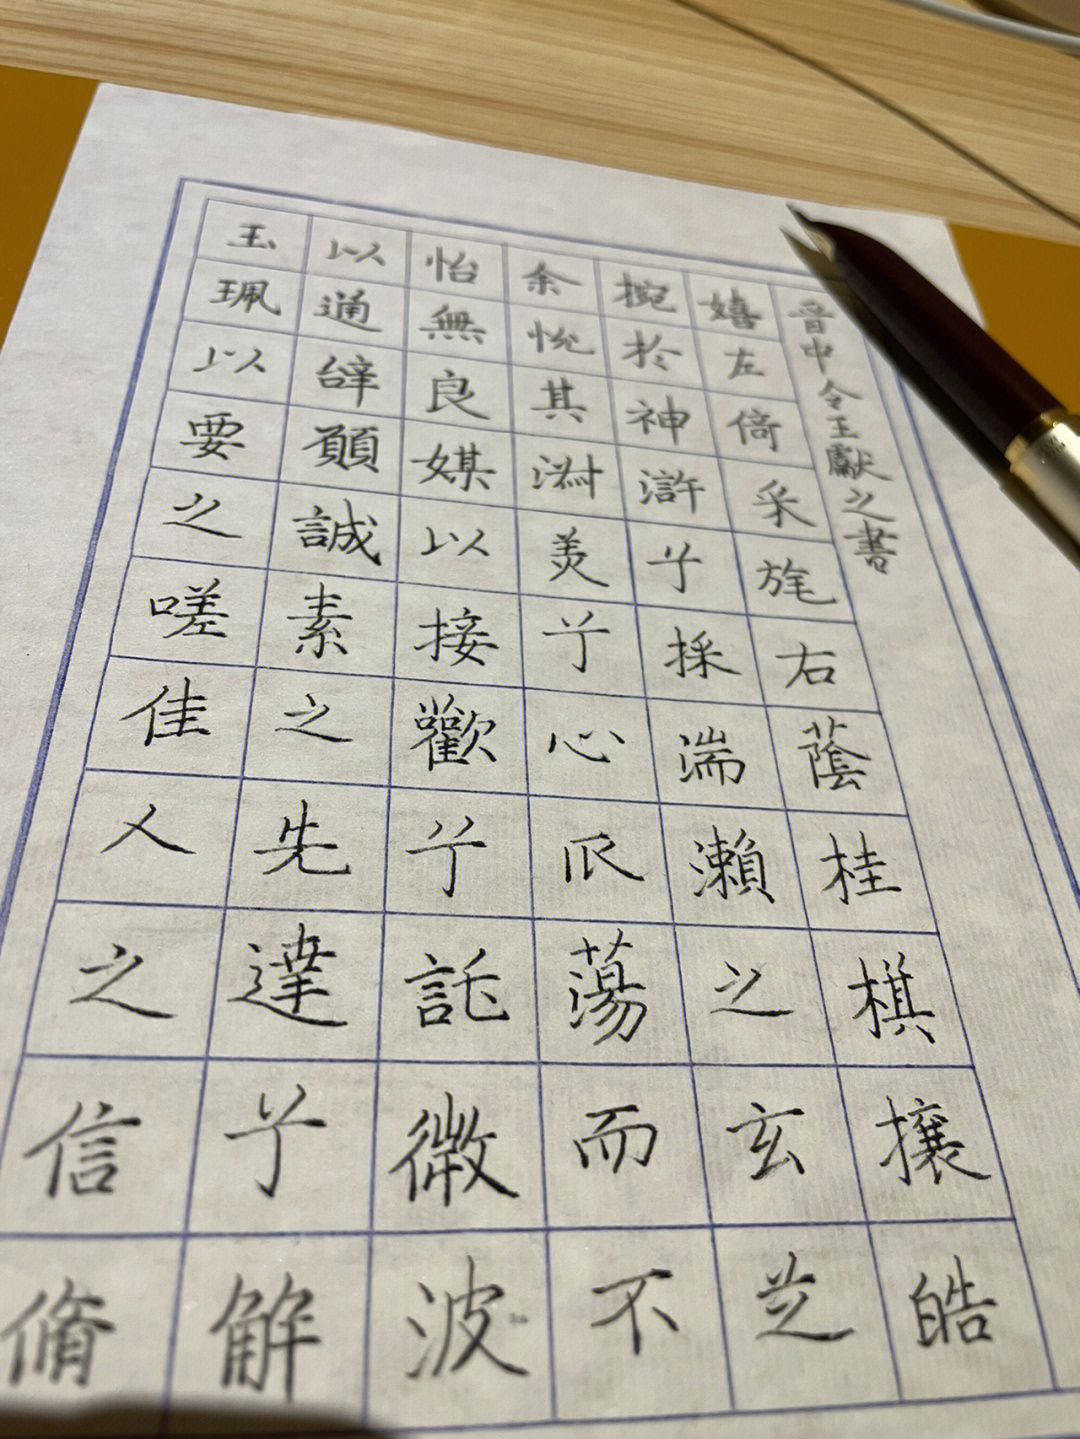 晉中令王獻之書
嬉左倚采旄右蔭桂棋攘皓
捥於神滸兮採湍瀨之玄芝
余悅其淑美兮心蕩而不
怡無良媒以接歡兮託微波
以通辝願誠素之先達兮解
玉珮以要之嗟佳人之信脩